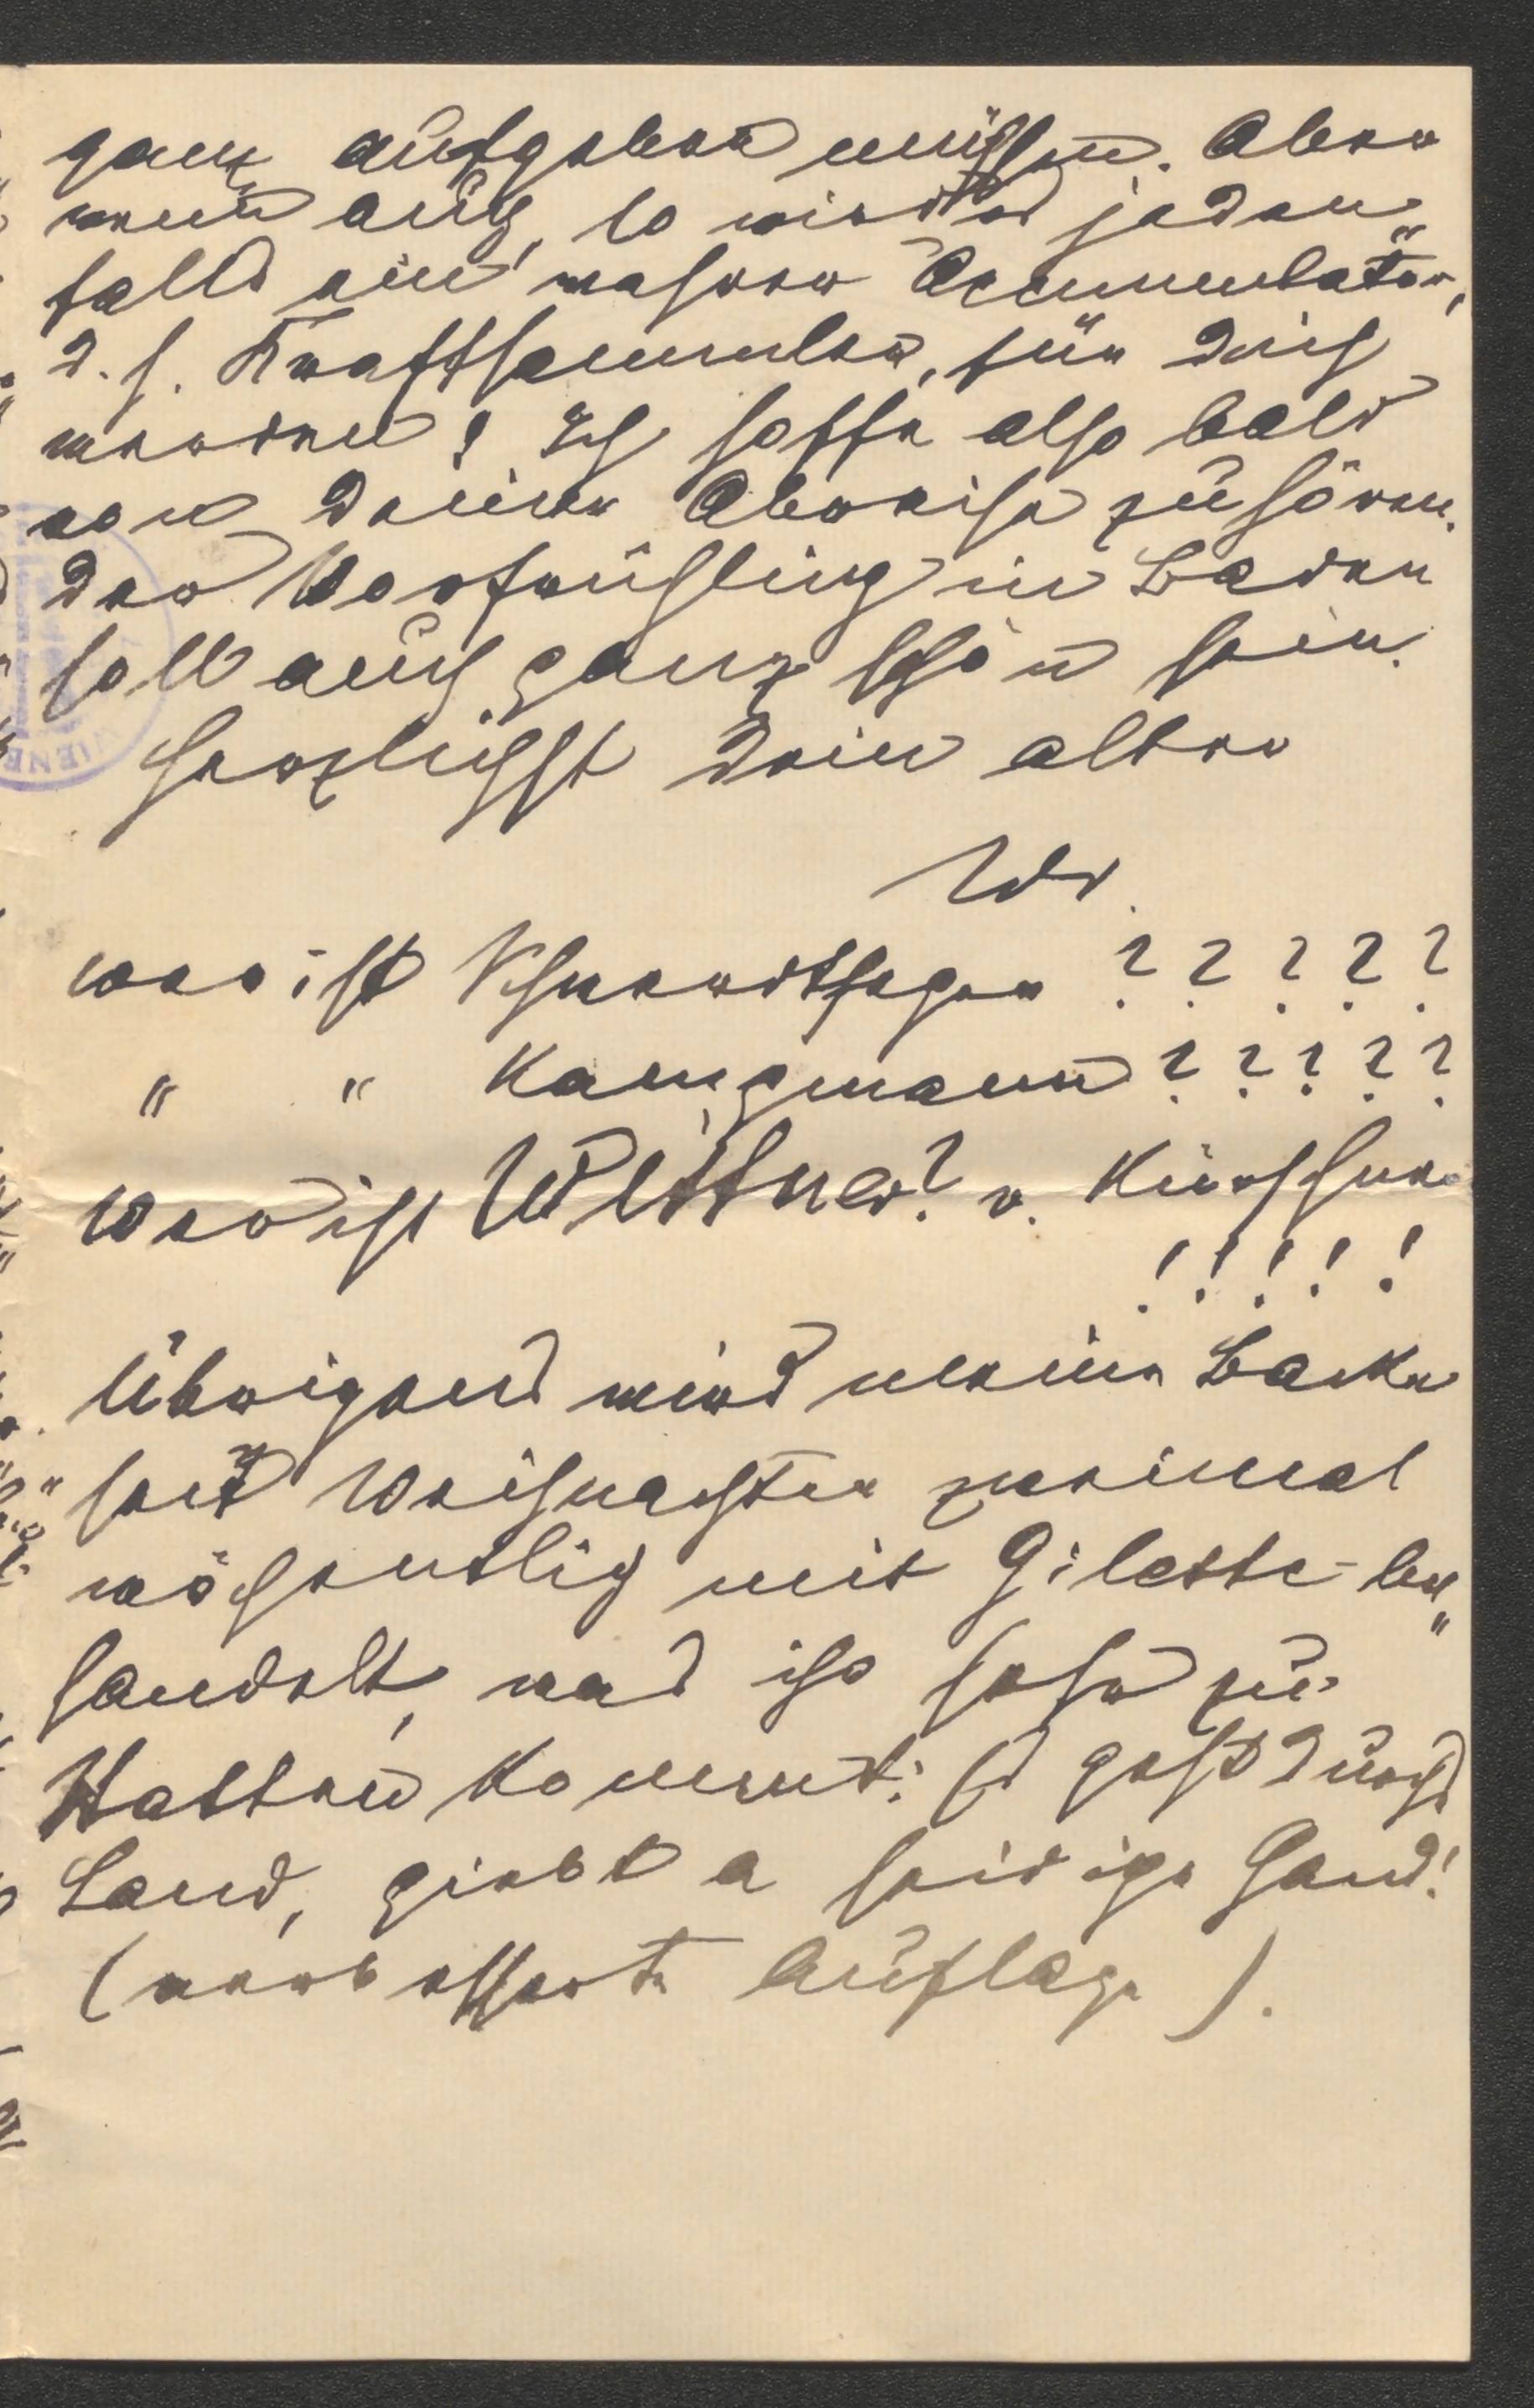 ganz aufgeben müssen. Aber
wenn auch, so wird es jeden„
falls ein wahrer Accumulator,
d. h. Kraftsammler, für Dich
werden! Ich hoffe also bald
von Deiner Abreise zu hören.
Der Vorfrühling in Baden
soll auch ganz schön sein.
Herzlichst Dein alter
Wer ist Schneordthagen ? ? ? ? ?
" " Kamgmann ? ? ? ? ?
Wer ist Wittner? v. Kürschner
! ! ! ! !
Übrigens wird meine Backe
seit Weihnachten zweimal
wöchentlich mit Gilette be„
handelt, was ihr sehr zu
Statten kommt: es geht durchs
Land, giebt a seidige Hand!
(verbesserte Auflage).